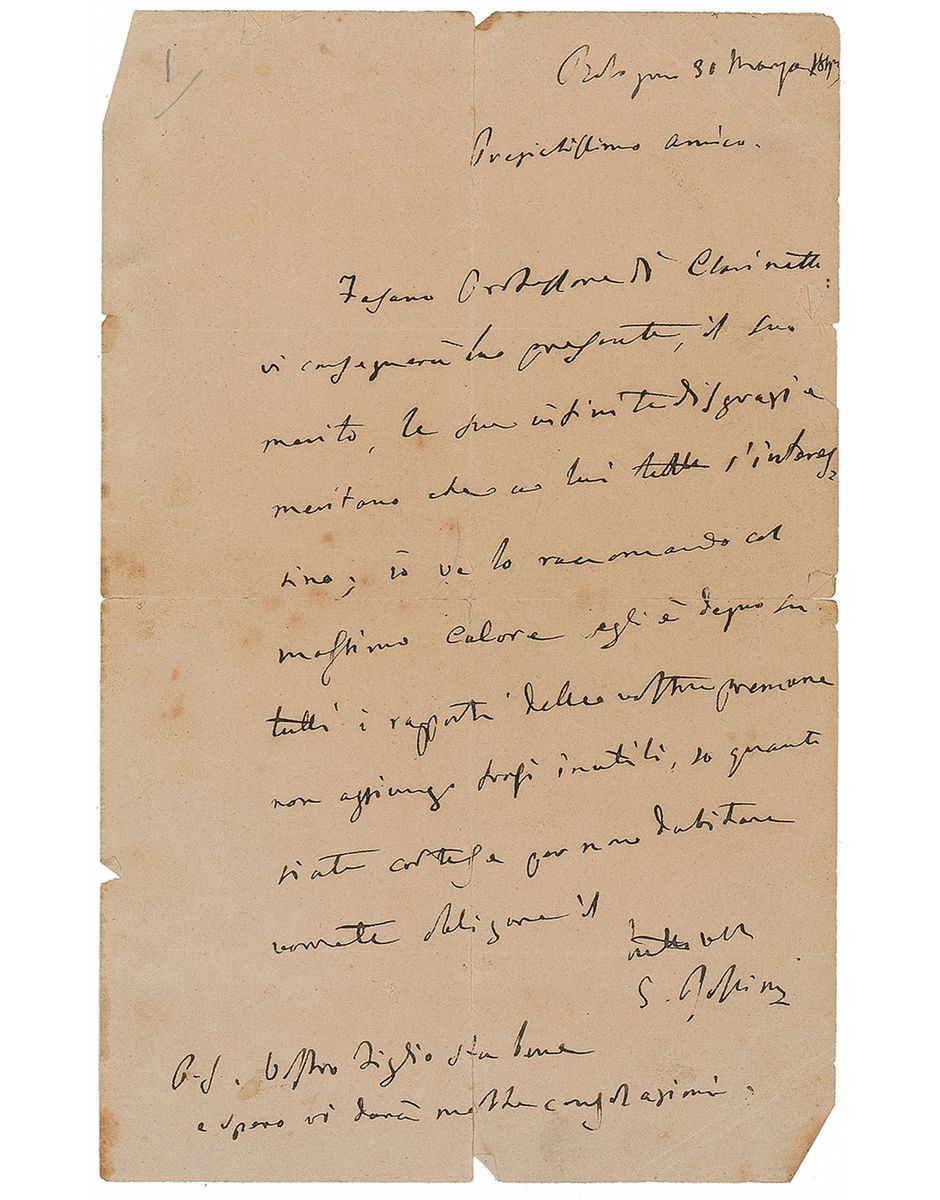 1
Bologna 30 Marzo
Pregiatissimo amico.
Fasano Professore di Clarinetto
vi consegnerà la presente, il suo
merito, le sue infinite disgrazie
meritano che a lui tutti s'interes
sino; io ve lo raccomando col
massimo calore egli è degno su
tutti i rapporti della vostra premura
non aggiungo frasi inutili, so quanto
siate cortese per non dubitare
vorrete obligare il
tutto vostro
G. Rossini
P.S. Vostro figlio sta bene
e spero vi darà molte consolazioni.